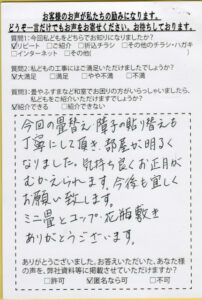 お客様のお声が私たちの励みになります。
どうぞ一言だけでもお声をお寄せください。お待ちしております。
質問1:今回私どもをどちらでお知りになりましたか?
☑リピート □ご紹介 □折込チラシ □その他のチラシ・ハガキ
□インターネット □その他(
質問2:私どもの工事にはご満足いただけましたでしょうか?
☑大満足 □満足 □やや不満 □不満
質問3:畳やふすまなど和室でお困りの方がいらっしゃいましたら、
私どもをご紹介いただけますでしょうか?
☑紹介できる □紹介できない
今回の畳替え、障子の貼り替えも
丁寧にして頂き、部屋が明るく
なりました。気持ち良くお正月が
むかえられます。今後も宜しく
お願い致します。
ミニ畳とコップ・花瓶敷き
ありがとうございます。
ありがとうございました。お答えいただいた、あなた様
の声を、弊社資料等に掲載させていただけますか?
□許可 ☑匿名なら可 □不可